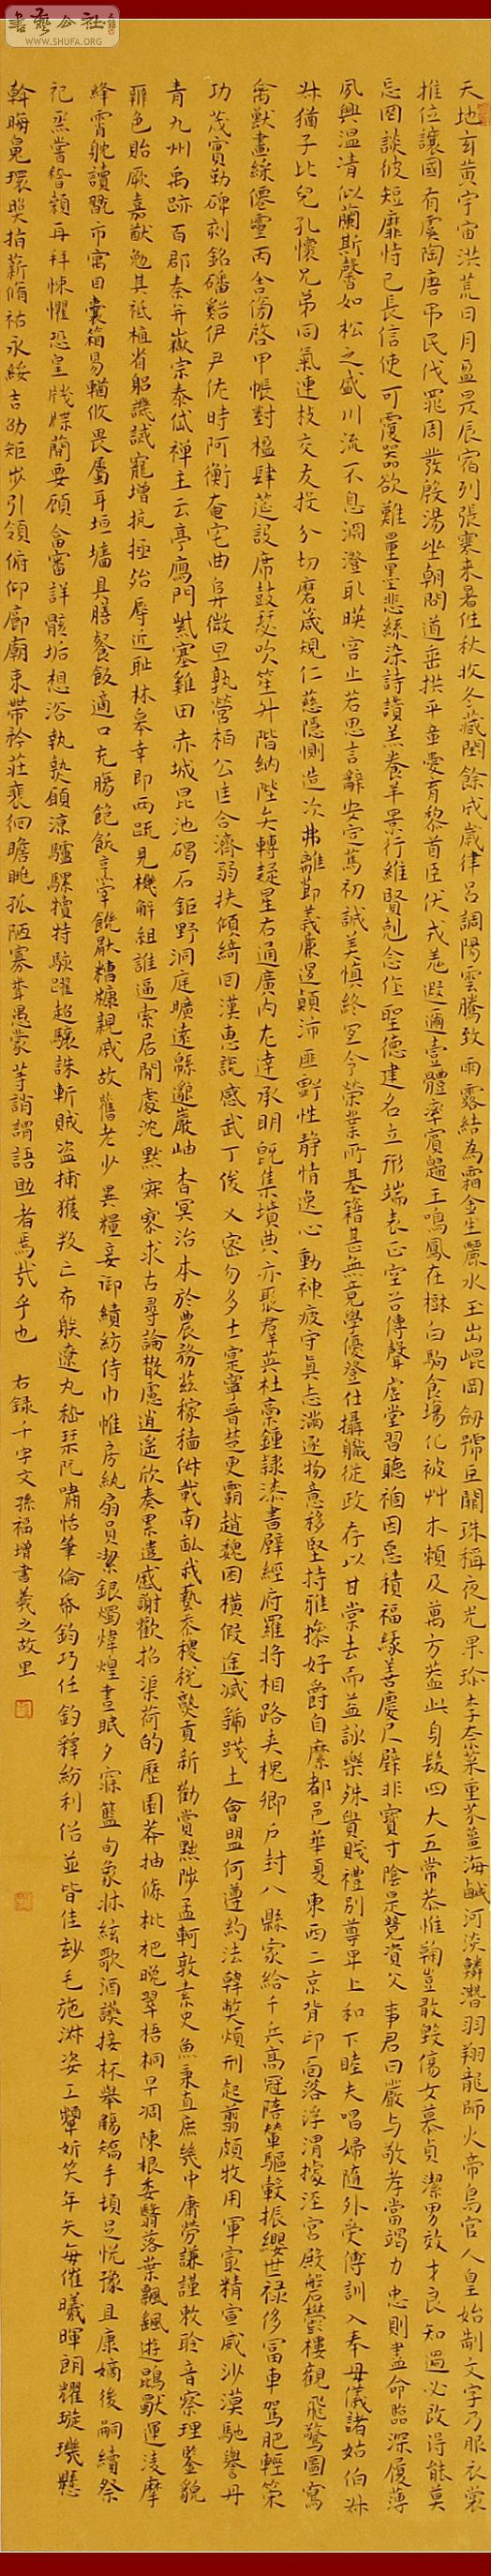 天地玄黃宇宙洪荒日月盈昃辰宿列張寒来暑往秋收冬藏閏餘成歲律呂調陽雲騰致雨露結為霜金生麗水玉出崐岡劒號巨闕珠稱夜光果珍李柰菜重芥薑海鹹河淡鱗潛羽翔龍師火帝鳥官人皇始制文字乃服衣裳
推位讓國有虞陶唐弔民伐罪周發殷湯坐朝問道垂拱平章愛育黎首臣伏戎羌遐邇壹體率賓歸王鳴鳳在樹白駒食場化被艸木賴及萬方蓋此身髮四大五常恭惟鞠豈敢毀傷女慕貞潔男效才良知過必改得能莫
忘罔談彼短靡恃己長信使可覆器欲難量墨悲絲染詩讚羔養羊景行維賢剋念作聖德建名立形端表正空谷傳聲虛堂習聽禍因惡積福緣善慶尺璧非寶寸陰是競資父事君曰嚴与敬孝當竭力忠則盡命臨深履薄
夙興溫清似蘭斯馨如松之盛川流不息淵澄取暎容止若思言辭安定篤初誠美慎終宜令榮業所基籍甚無竟學優登仕攝職從政存以甘棠去而益詠樂殊貴賤禮別尊卑上和下睦夫唱婦隨外受傅訓入奉母儀諸姑伯叔
叔猶子比兒孔懷兄弟同氣連枝交友投分切磨箴規仁慈隱惻造次弗離節義廉退顛沛匪虧性静情逸心動神疲守真志滿逐物意移堅持雅操好爵自縻都邑華夏東西二京背邙面洛浮渭據涇宮殿磐鬱樓觀飛驚圖寫
禽獸畫綵僊靈丙舍傍啓甲帳對楹肆筵設席鼓瑟吹笙升階納陛弁轉疑星右通廣內左達承明既集墳典亦聚群英杜稾鍾隸漆書壁經府羅將相路夾槐卿戶封八縣家給千兵高冠陪輦驅轂振纓世禄侈富車駕肥輕策
功茂實勒碑刻銘磻谿伊尹佐時阿衡奄宅曲阜微旦孰營桓公匡合濟弱扶傾綺回漢惠說感武丁俊乂密勿多士寔寧晉楚更霸趙魏困橫假途滅虢踐土會盟何遵約法韓弊煩刑起翦頗牧用軍最精宣威沙漠馳譽丹
青九州禹跡百郡秦并嶽宗泰岱禪主云亭鴈門紫塞雞田赤城昆池碣石鉅野洞庭曠遠緜邈巖岫杳冥治本於農務茲稼穡俶載南畝我藝黍稷稅熟貢新勸賞黜陟孟軻敦素史魚秉直庶幾中庸勞謙謹敕聆音察理鑒貌
辨色貽厥嘉猷勉其祗植省躬譏誡寵增抗極殆辱近耻林皋幸即兩疏見機解組誰逼索居閒處沈默寂寥求古尋論散慮逍遙欣奏累遣慼謝歡招渠荷的歷園莽抽條枇杷晚翠梧桐早凋陳根委翳落葉飄颻遊鵾獸運凌摩
絳霄耽讀翫市寓目囊箱易輶攸畏屬耳垣墻具膳餐飯適口充腸飽飫烹宰饑厭糟糠親戚故舊老少異糧妾御績紡侍巾帷房紈扇員潔銀燭煒煌晝眠夕寐籃筍象牀絃歌酒讌接杯舉觴矯手頓足悅豫且康嫡後嗣續祭
祀烝嘗稽顙再拜悚懼恐皇牋牒簡要顧答審詳骸垢想浴執熱願涼驢騾犢特駭躍超驤誅斬賊盜捕獲叛亡布射遼丸嵇琴阮嘯恬筆倫紙鈞巧任釣釋紛利俗並皆佳妙毛施淑姿工顰妍笑年矢每催曦暉朗耀璇璣懸
斡晦魄環照指薪脩祜永綏吉劭矩步引領俯仰廊廟束帶矜莊裴徊瞻眺孤陋寡聞愚蒙等誚謂語助者焉哉乎也 右録千字文孫福增書羲之故里
書藝公社
WWW.SHUFA.ORG